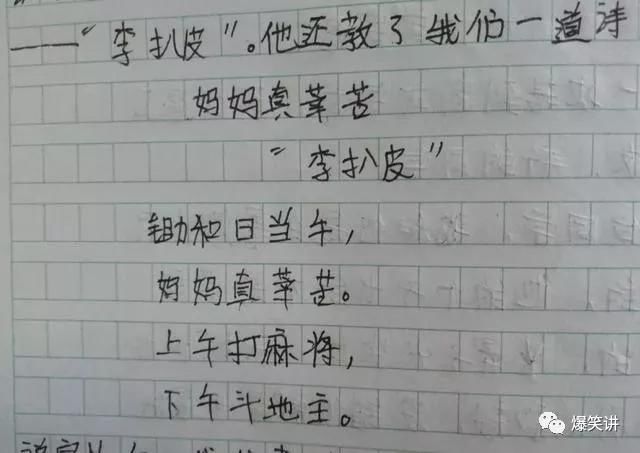 ——“李扒皮”。他还教了我们一道诗
妈妈真莘苦
“李扒皮”
锄和日当午，
妈妈真莘苦。
上午打麻将，
下午斗地主。
爆笑讲